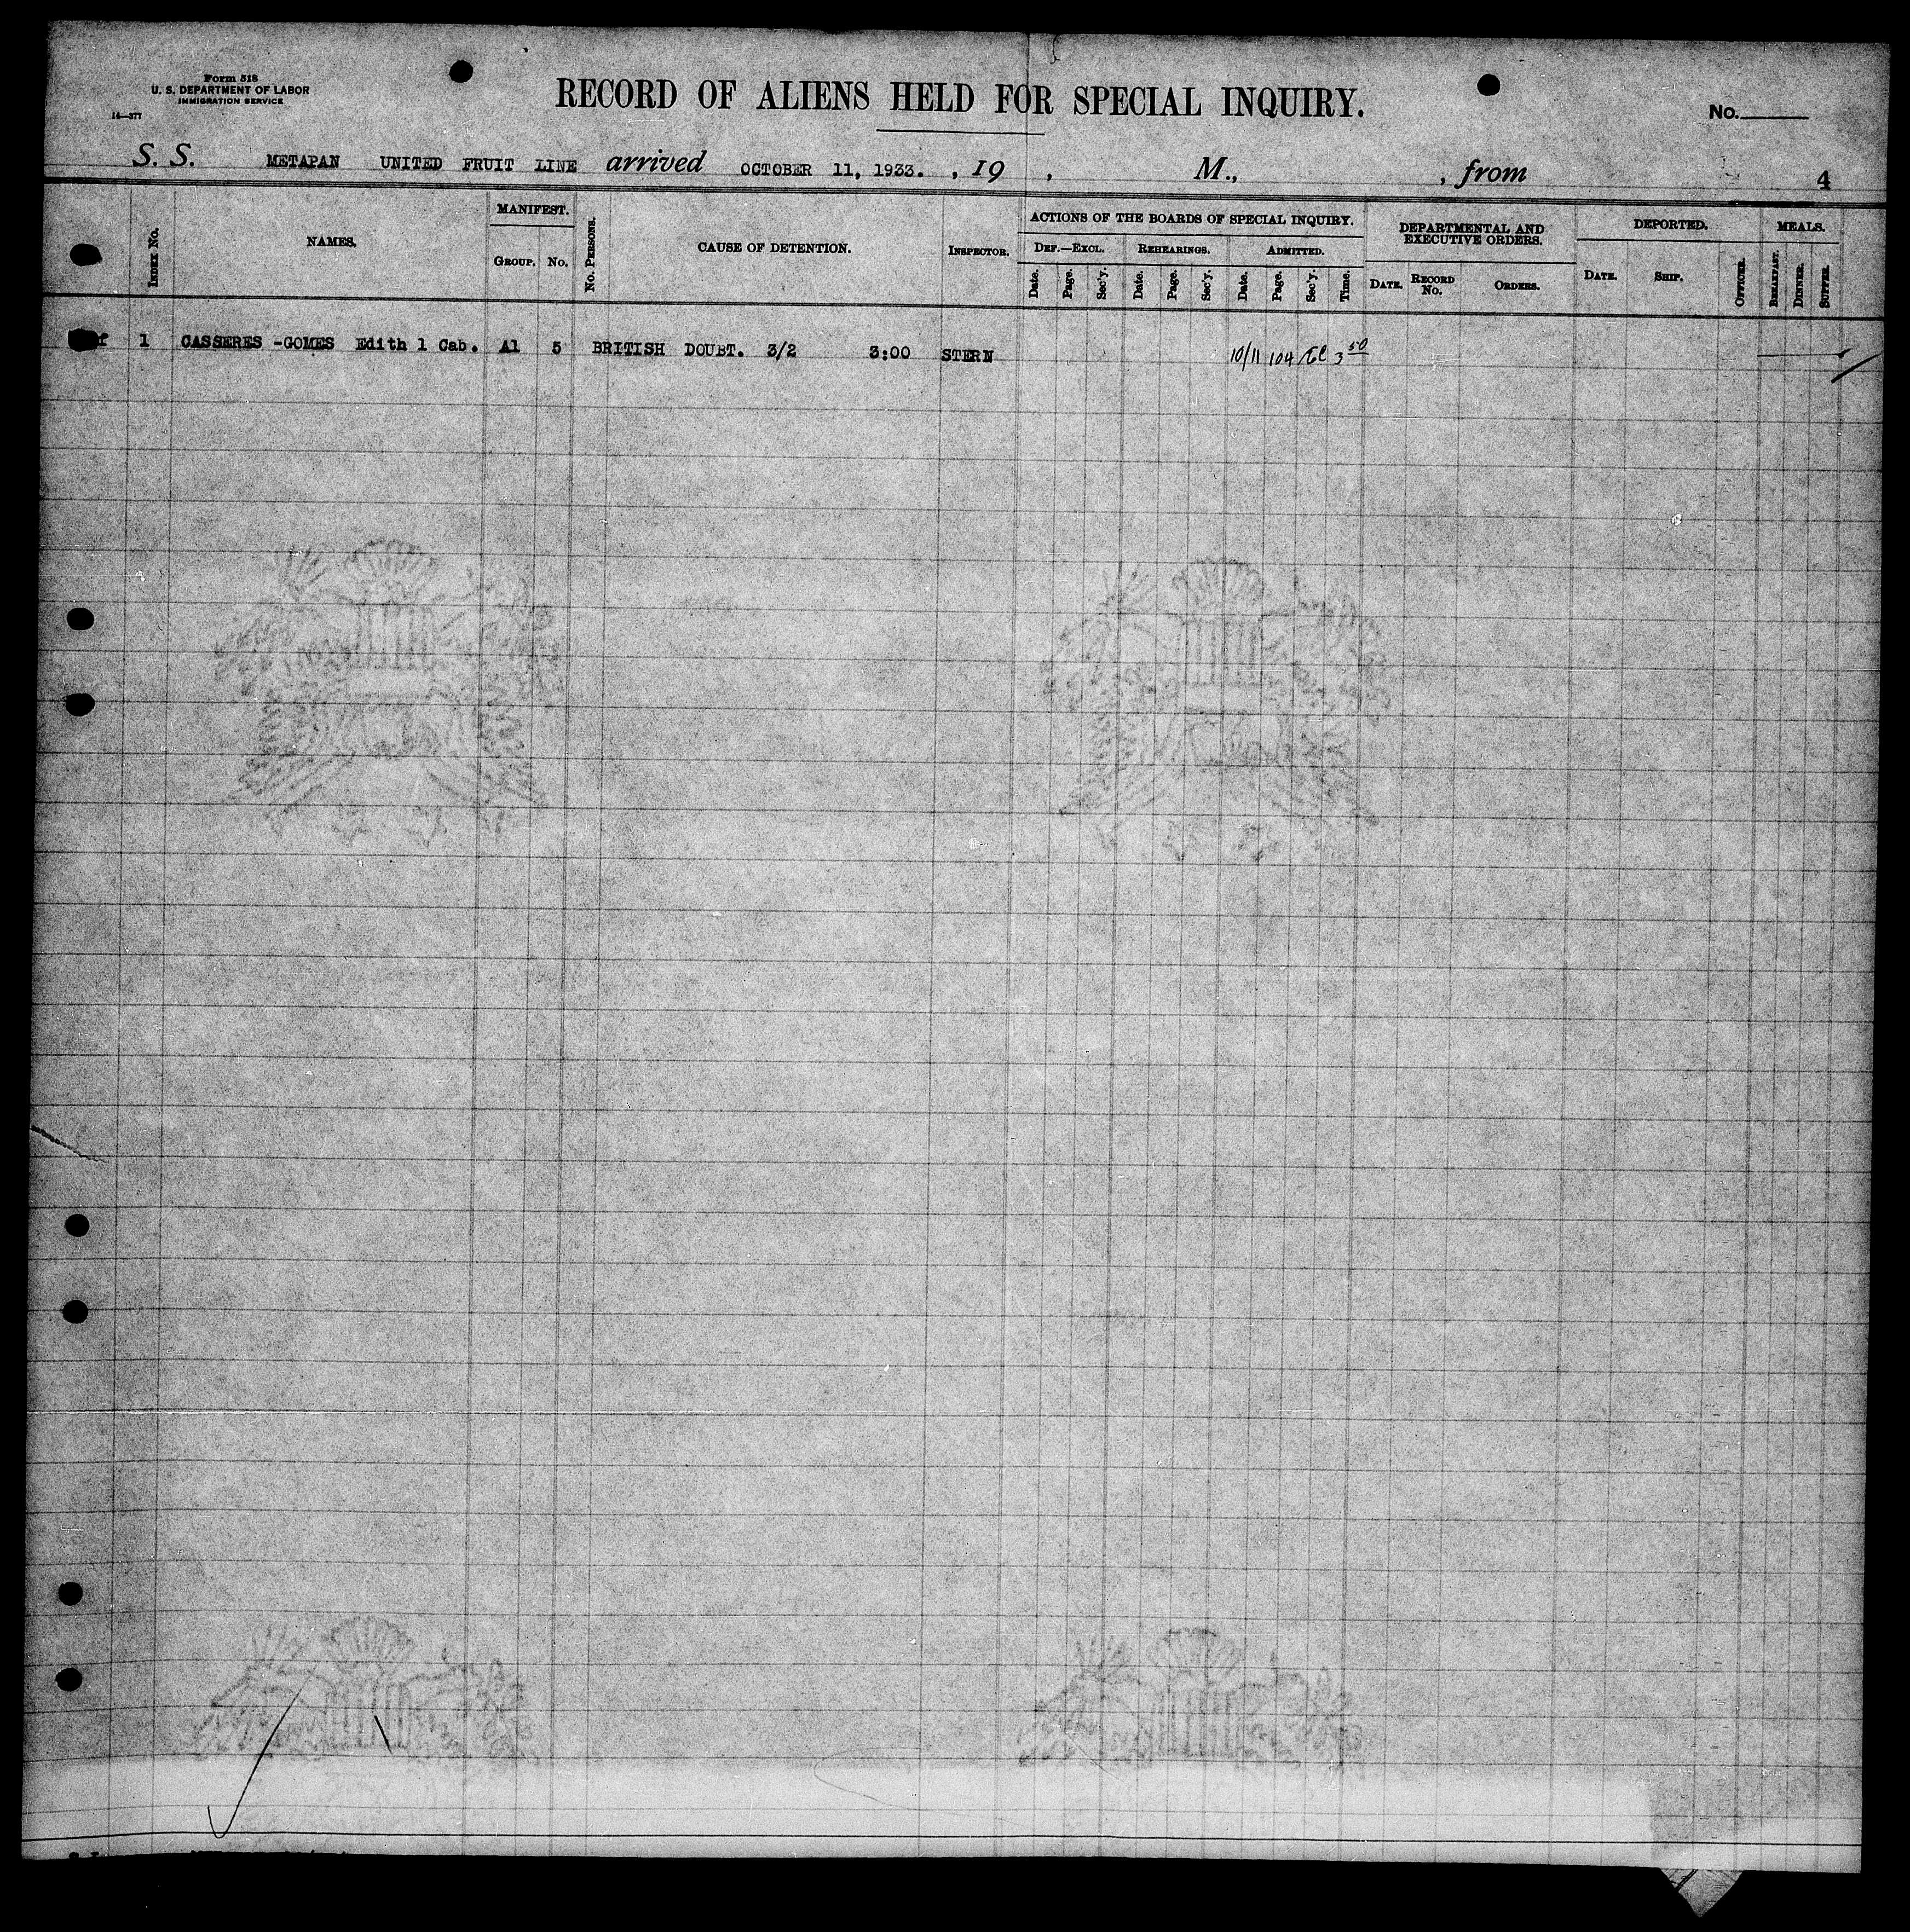 Form 518
U. S. DEPARTMENT OF LABOR
IMMIGRATION SERVICE
14—377
RECORD OF ALIENS HELD FOR SPECIAL INQUIRY.
No.
S. S. METAPAN UNITED FRUIT LINE arrived OCTOBER 11, 1933. , 19 , M., , from 4
INDEX No. NAMES. MANIFEST. GROUP. No. No. PERSONS. CAUSE OF DETENTION. INSPECTOR. ACTIONS OF THE BOARDS OF SPECIAL INQUIRY. DEF.—EXCL. Date. Page. Sec'y. REHEARINGS. Date. Page. Sec'y. ADMITTED. Date. Page. Sec'y. Time. DEPARTMENTAL AND EXECUTIVE ORDERS. DATE. RECORD No. ORDERS. DEPORTED. DATE. SHIP. OFFICER. MEALS. BREAKFAST. DINNER. SUPPER.
1 CASSERES -GOMES Edith 1 Cab. A1 5 BRITISH DOUBT. 3/2 3:00 STERN 10/11 104 3 50